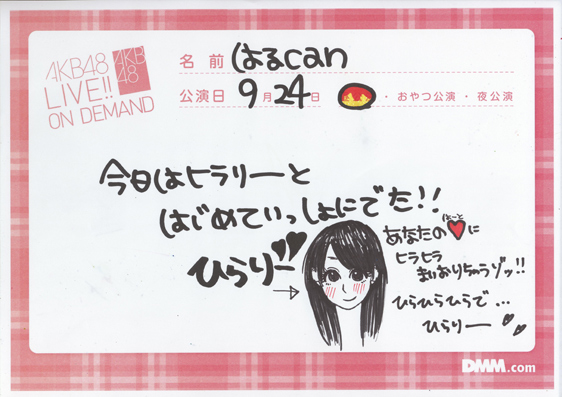 AKB48
LIVE!!
ON DEMAND
AKB
48
名前 はるcan
公演日 9月24日 ・おやつ公演・夜公演
今日はヒラリーと
はじめていっしょにでた!!
ひらりー
はーと
あなたの♥に
ヒラヒラ
まいおりちゃうゾッ!!
ひらひらひらで...
ひらりー
DMM.com